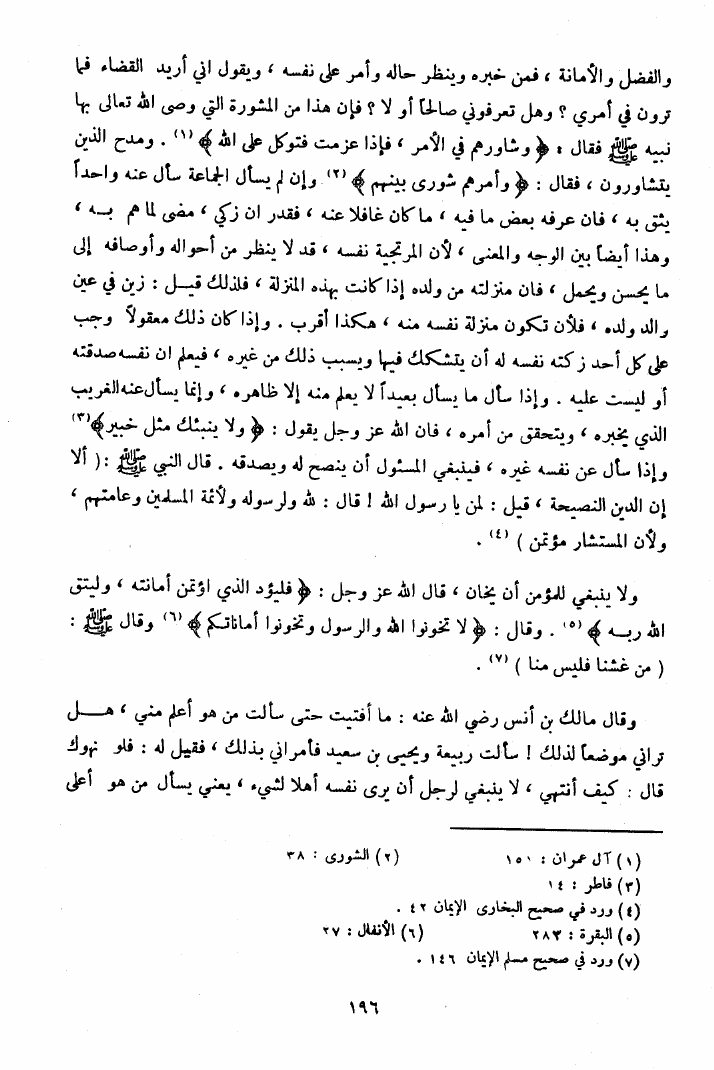 والفضل والأمانة ، فمن خبره وينظر حاله وأمر على نفسه ، ويقول اني أريد القضاء فما
ترون في أمري ؟ وهل تعرفوني صالحاً أو لا ؟ فإن هذا من المشورة التي وصى الله تعالى بها
نبيه ﷺ فقال : ﴿ وشاورهم في الأمر ، فإذا عزمت فتوكل على الله ﴾ (١) . ومدح الذين
يتشاورون ، فقال : ﴿ وأمرهم شورى بينهم ﴾ (٢) وإن لم يسأل الجماعة سأل عنه واحداً
يثق به ، فان عرفه بعض ما فيه ، ما كان غافلا عنه ، فقدر ان زكي ، مضى لما هم بـه ،
وهذا أيضاً بين الوجه والمعنى ، لأن المرتجية نفسه ، قد لا ينظر من أحواله وأوصافه إلى
ما يحسن ويحمل ، فان منزلته من ولده إذا كانت بهذه المنزلة ، فلذلك قيـل : زين في عين
والد ولده ، فلأن تكون منزلة نفسه منه ، هكذا أقرب . وإذا كان ذلك معقولاً وجب
على كل أحد زكته نفسه له أن يتشكك فيها ويسبب ذلك من غيره ، فيعلم ان نفسه صدقته
أو ليست عليه . وإذا سأل ما يسأل بعيداً لا يعلم منه إلا ظاهره ، وإنما يسأل عنه الغريب
الذي يخبره ، ويتحقق من أمره ، فان الله عز وجل يقول : ﴿ ولا ينبئك مثل خبير ﴾ (٣)
وإذا سأل عن نفسه غيره ، فينبغي المسئول أن ينصح له ويصدقه . قال النبي ﷺ : ( ألا
إن الدين النصيحة ، قيل : لمن يا رسول الله ! قال : لله ولرسوله ولأئمة المسلمين وعامتهم ،
ولأن المستشار مؤتمن ) (٤) .
ولا ينبغي للمؤمن أن يخان ، قال الله عز وجل : ﴿ فليؤد الذي اؤتمن أمانته ، وليتق
الله ربـه ﴾ (٥) . وقال : ﴿ لا تخونوا الله والرسول وتخونوا أماناتكم ﴾ (٦) وقال ﷺ :
( من غشنا فليس منا ) (٧) .
وقال مالك بن أنس رضي الله عنه : ما أفتيت حتى سألت من هو أعلم مني ، هـل
تراني موضعاً لذلك ! سألت ربيعة ويحيى بن سعيد فأمراني بذلك ، فقيل له : فلو نهوك
قال : كيف أنتهي ، لا ينبغي لرجل أن يرى نفسه أهلا لشيء ، يعني يسأل من هو أعلى
(١) آل عمران : ١٥١ (٢) الشورى : ٣٨
(٣) فاطر : ١٤
(٤) ورد في صحيح البخارى الإيمان ٤٢ .
(٥) البقرة : ٢٨٣ (٦) الأنفال : ٢٧
(٧) ورد في صحيح مسلم الإيمان ١٤٦ .
١٩٦